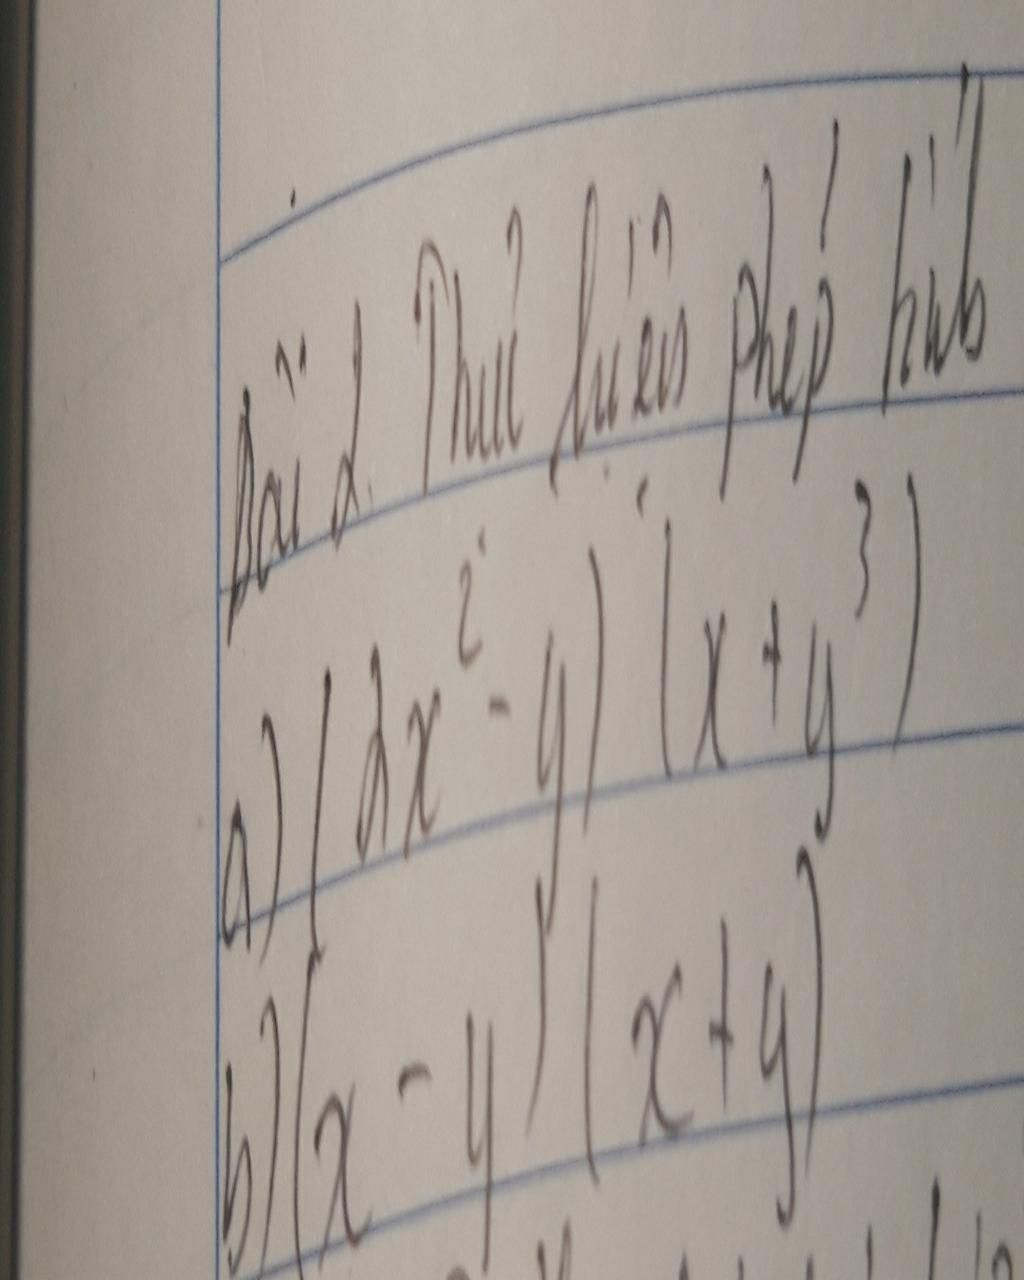 Bài 2. Thực hiện phép tính
a) (2x² - y) (x + y³)
b) (x - y) (x + y)